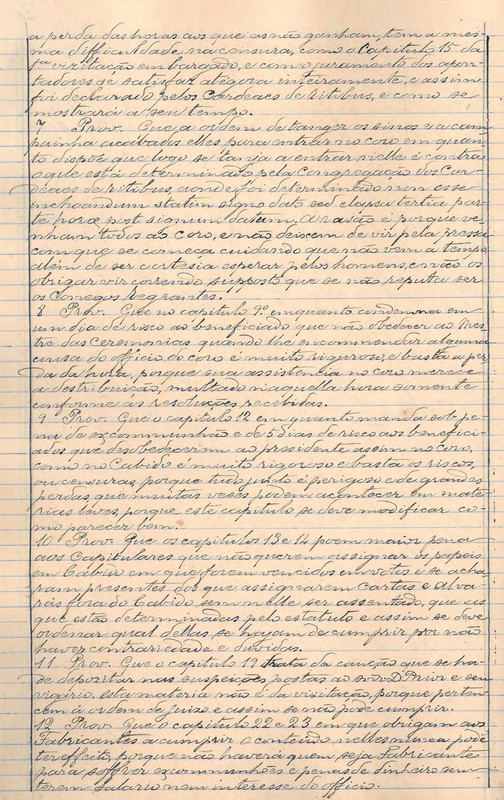 a perda das horas aos que as não ganham, tem a mes-
ma difficuldade na censura, como o Capitulo 15 da
fª vizitação em baração, e com o juramento dos apon-
tadores se satisfaz atégora inteiramente, e assim
foi declarado pelos Cardeaes de Ritibus, e como se
mostrará a seu tempo.
7 Prov. Que a ordem de tanger os sinos e a cam
painha acabados elles para entrar no coro, em quan-
to dispõe que logo se tanja a entrar nelle é contra
o que está determinado pela Congregação dos Car-
deaes de Ritibus, aonde foi determinado non esse
inchoandum statim signo dato sed elapsa tertia par-
te horæ post signum datum, a rasão é porque ve-
nham todos ao coro, e não deixem de vir pela pressa
com que se começa cuidando que não vem a tempo,
alem de ser cortesia esperar pelos homens, e não os
obrigar vir correndo supposto que se não reputa ser
os Conegos Regrantes.
8 Prov. Que no capitulo 9º emquanto condemna em
um dia de risco ao beneficiado que não obedecer ao Mes-
tre das Ceremonias quando lhe encommendar alguma
cousa do officio do coro é muito riguroso, e basta a per
da da hora, porque sua assistencia no coro merece
a destribuisão, multado n'aquella hora somente
conforme ás resoluções recebidas.
9 Prov. Que o capitulo 12 em quanto manda sob pe-
na de excommunhão e de 5 dias de risco aos benefici-
ados que desobedecerem ao presidente assim no coro,
como no Cabido é muito rigoroso e basta os riscos,
ou censuras, porque tudo junto é perigoso e de grandes
perdas, que muitas vezes podem acontecer em mate-
rias leves, porque este capitulo se deve modificar co-
mo parecer bem.
10 Prov. Que os capitulos 13 e 14 poem maior pena
aos Capitulares que não querem assignar os papeis
em Cabido em que forem vencidos em votos e se acha-
ram presentes, dos que assignarem cartas e alva-
rás fora do Cabido, sem n'elle ser assentado, que as
que estão determinadas pelo estatuto e assim se deve
ordenar qual dellas se hajam de cumprir por não
haver contrariedade e duvidas.
11 Prov. Que o capitulo 19 trata da caução que se ha-
de depositar nas suspeições postas ao D. Prior e seu
vigario. Esta materia não é da visitação, porque perten-
cem á ordem de juizo e assim se não póde cumprir.
12 Prov. Que o capitulo 22 e 23 em que obrigam aos
Fabricantes a cumprir o conteúdo nelles nunca pode
ter effeito, porque não haverá quem seja Fabricante
para soffrer excommunhões e penas de dinheiro sem
terem salario nem interesse do officio.